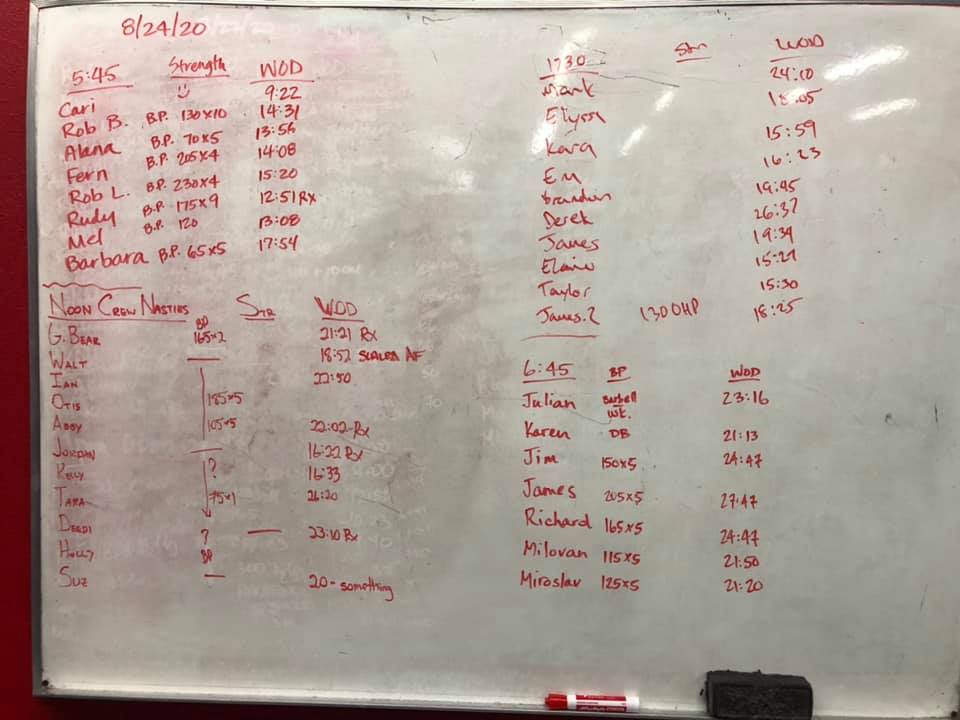 8/24/20
5:45 Strength WOD
Cari 9:22
Rob B. B.P. 130x10 14:31
Alana B.P. 70x5 13:56
Fern B.P. 205x4 14:08
Rob L. B.P. 230x4 15:20
Rudy B.P. 175x9 12:51 Rx
Mel B.P. 120 13:08
Barbara B.P. 65x5 17:54
Noon Crew Nasties Str WOD
G. Bear BP 165x2 21:21 Rx
Walt — 18:52 Scaled AF
Ian 22:50
Otis 185x5
Abby 105x5 22:02 Rx
Jordan — 16:22 Rx
Kelly ? 16:33
Tara 75x1 26:20
Deedi ? — 23:10 Rx
Holly BP
Suz — 20-something
1730 Str WOD
Mark 24:10
Elyssa 18:05
Kara 15:59
Em 16:23
Brandon 19:45
Derek 26:37
James 19:34
Elaine
Taylor 15:30
James.2 130 OHP 18:25
6:45 BP WOD
Julian Barbell wt. 23:16
Karen DB 21:13
Jim 150x5 24:47
James 205x5 27:47
Richard 165x5 24:47
Milovan 115x5 21:50
Miroslav 125x5 21:20